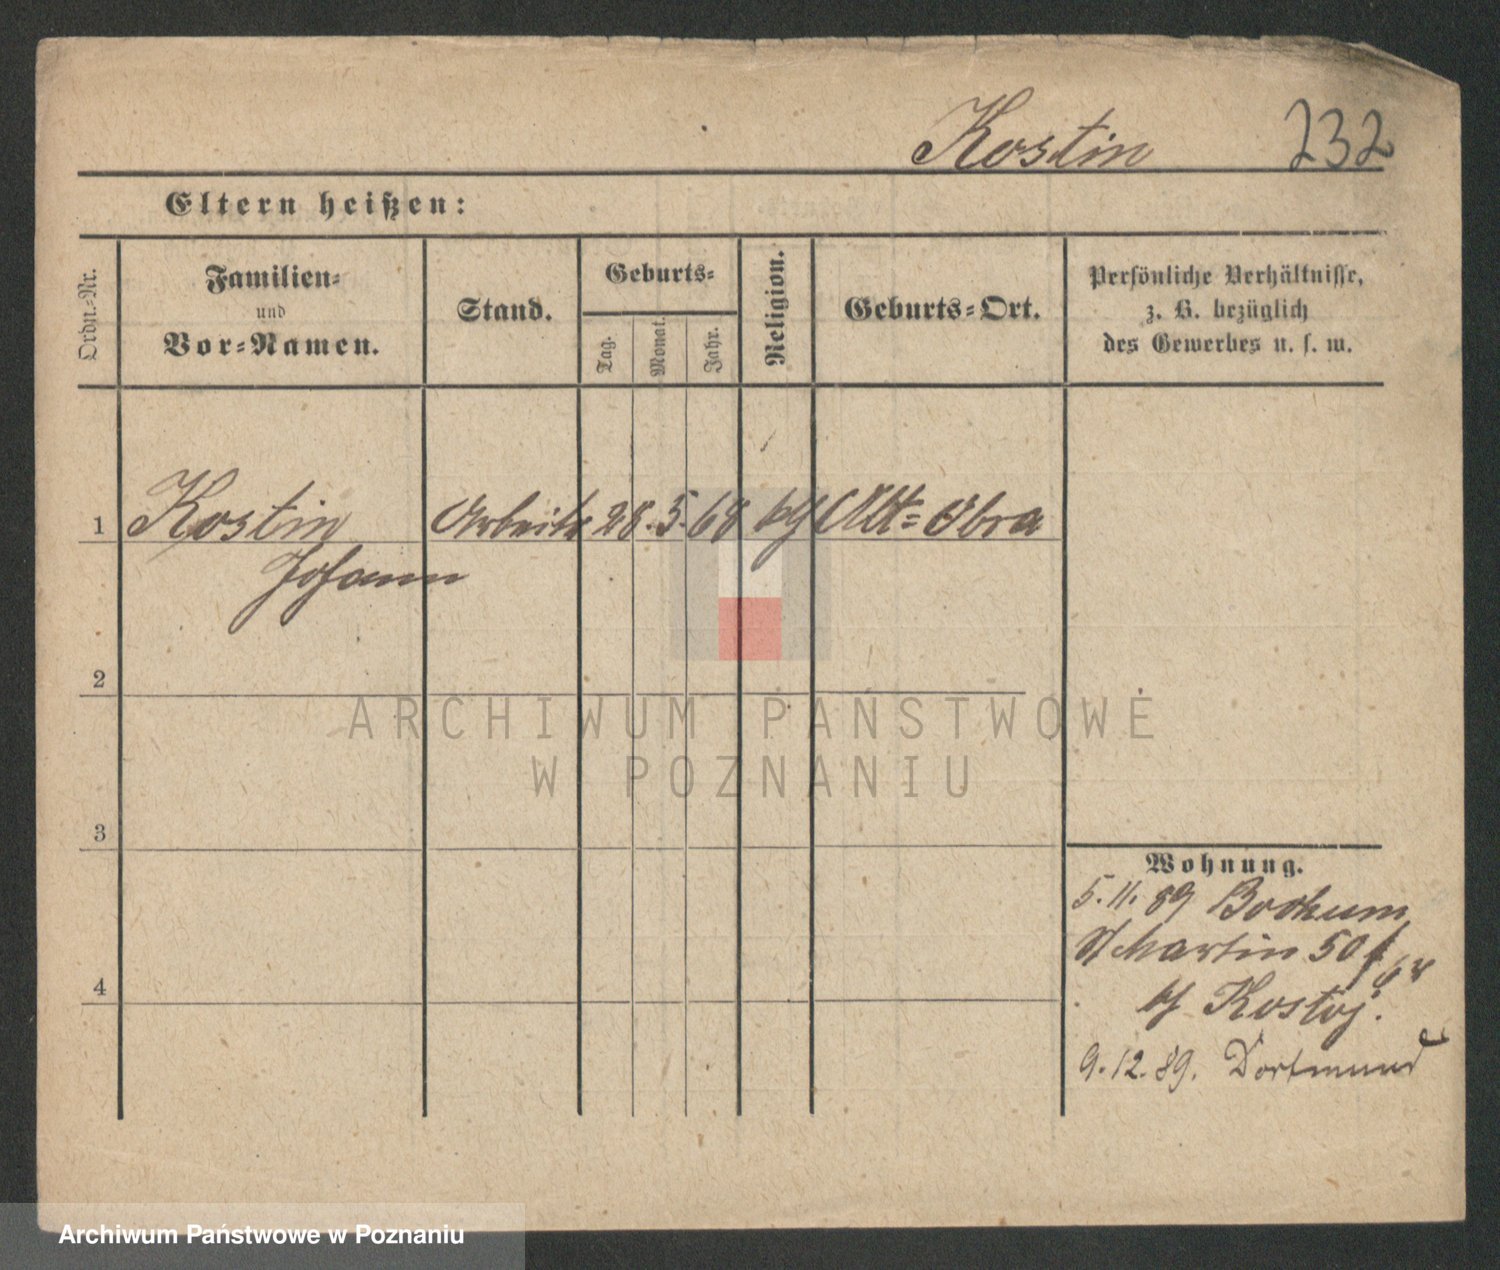 Kostin 232
Eltern heißen:
Ordn.-Nr.
Familien-
und
Vor-Namen.
Stand.
Geburts-
Tag.
Monat.
Jahr.
Religion.
Geburts-Ort.
Persönliche Verhältnisse,
z. B. bezüglich
des Gewerbes u. s. w.
1 Kostin Arbeiter 28. 5. 68 Alt= Obra
Johann
2
3
4
Wohnung.
5. 11. 89 Bochum
St Martin 50
9. 12. 89. Dortmund
ARCHIWUM PAŃSTWOWE
W POZNANIU
Archiwum Państwowe w Poznaniu